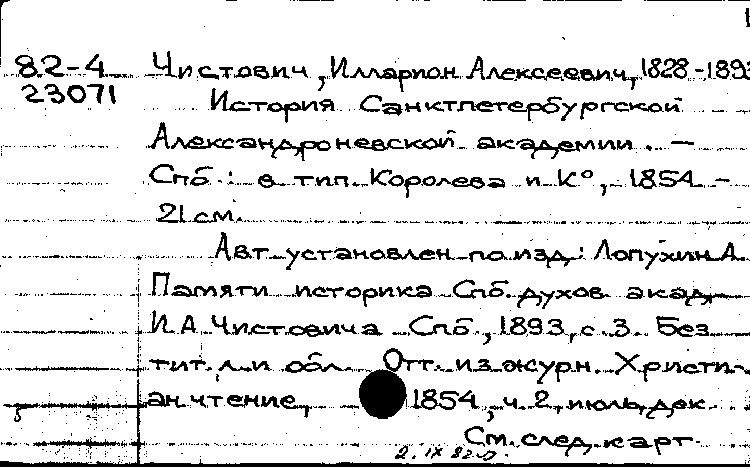 82-4 Чистович, Илларион Алексеевич, 1828-1893
23071 История Санктпетербургской
Александроневской академии. —
Спб.: в тип. Королева и К°, 1854 -
21 см.
Авт установлен по изд: Лопухин А.
Памяти историка Спб. духов акад.
И.А. Чистовича Спб, 1893, с. 3. Без
тит. л. и обл. Отт. из журн. Христи-
ан. чтение, 1854, ч. 2, июль, дек.
См. след. карт.